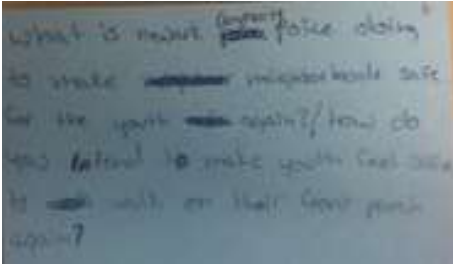 what is newark police doing
to make neighborhoods safe
for the youth again?/how do
you intend to make youth feel safe
to walk on their front porch
again?